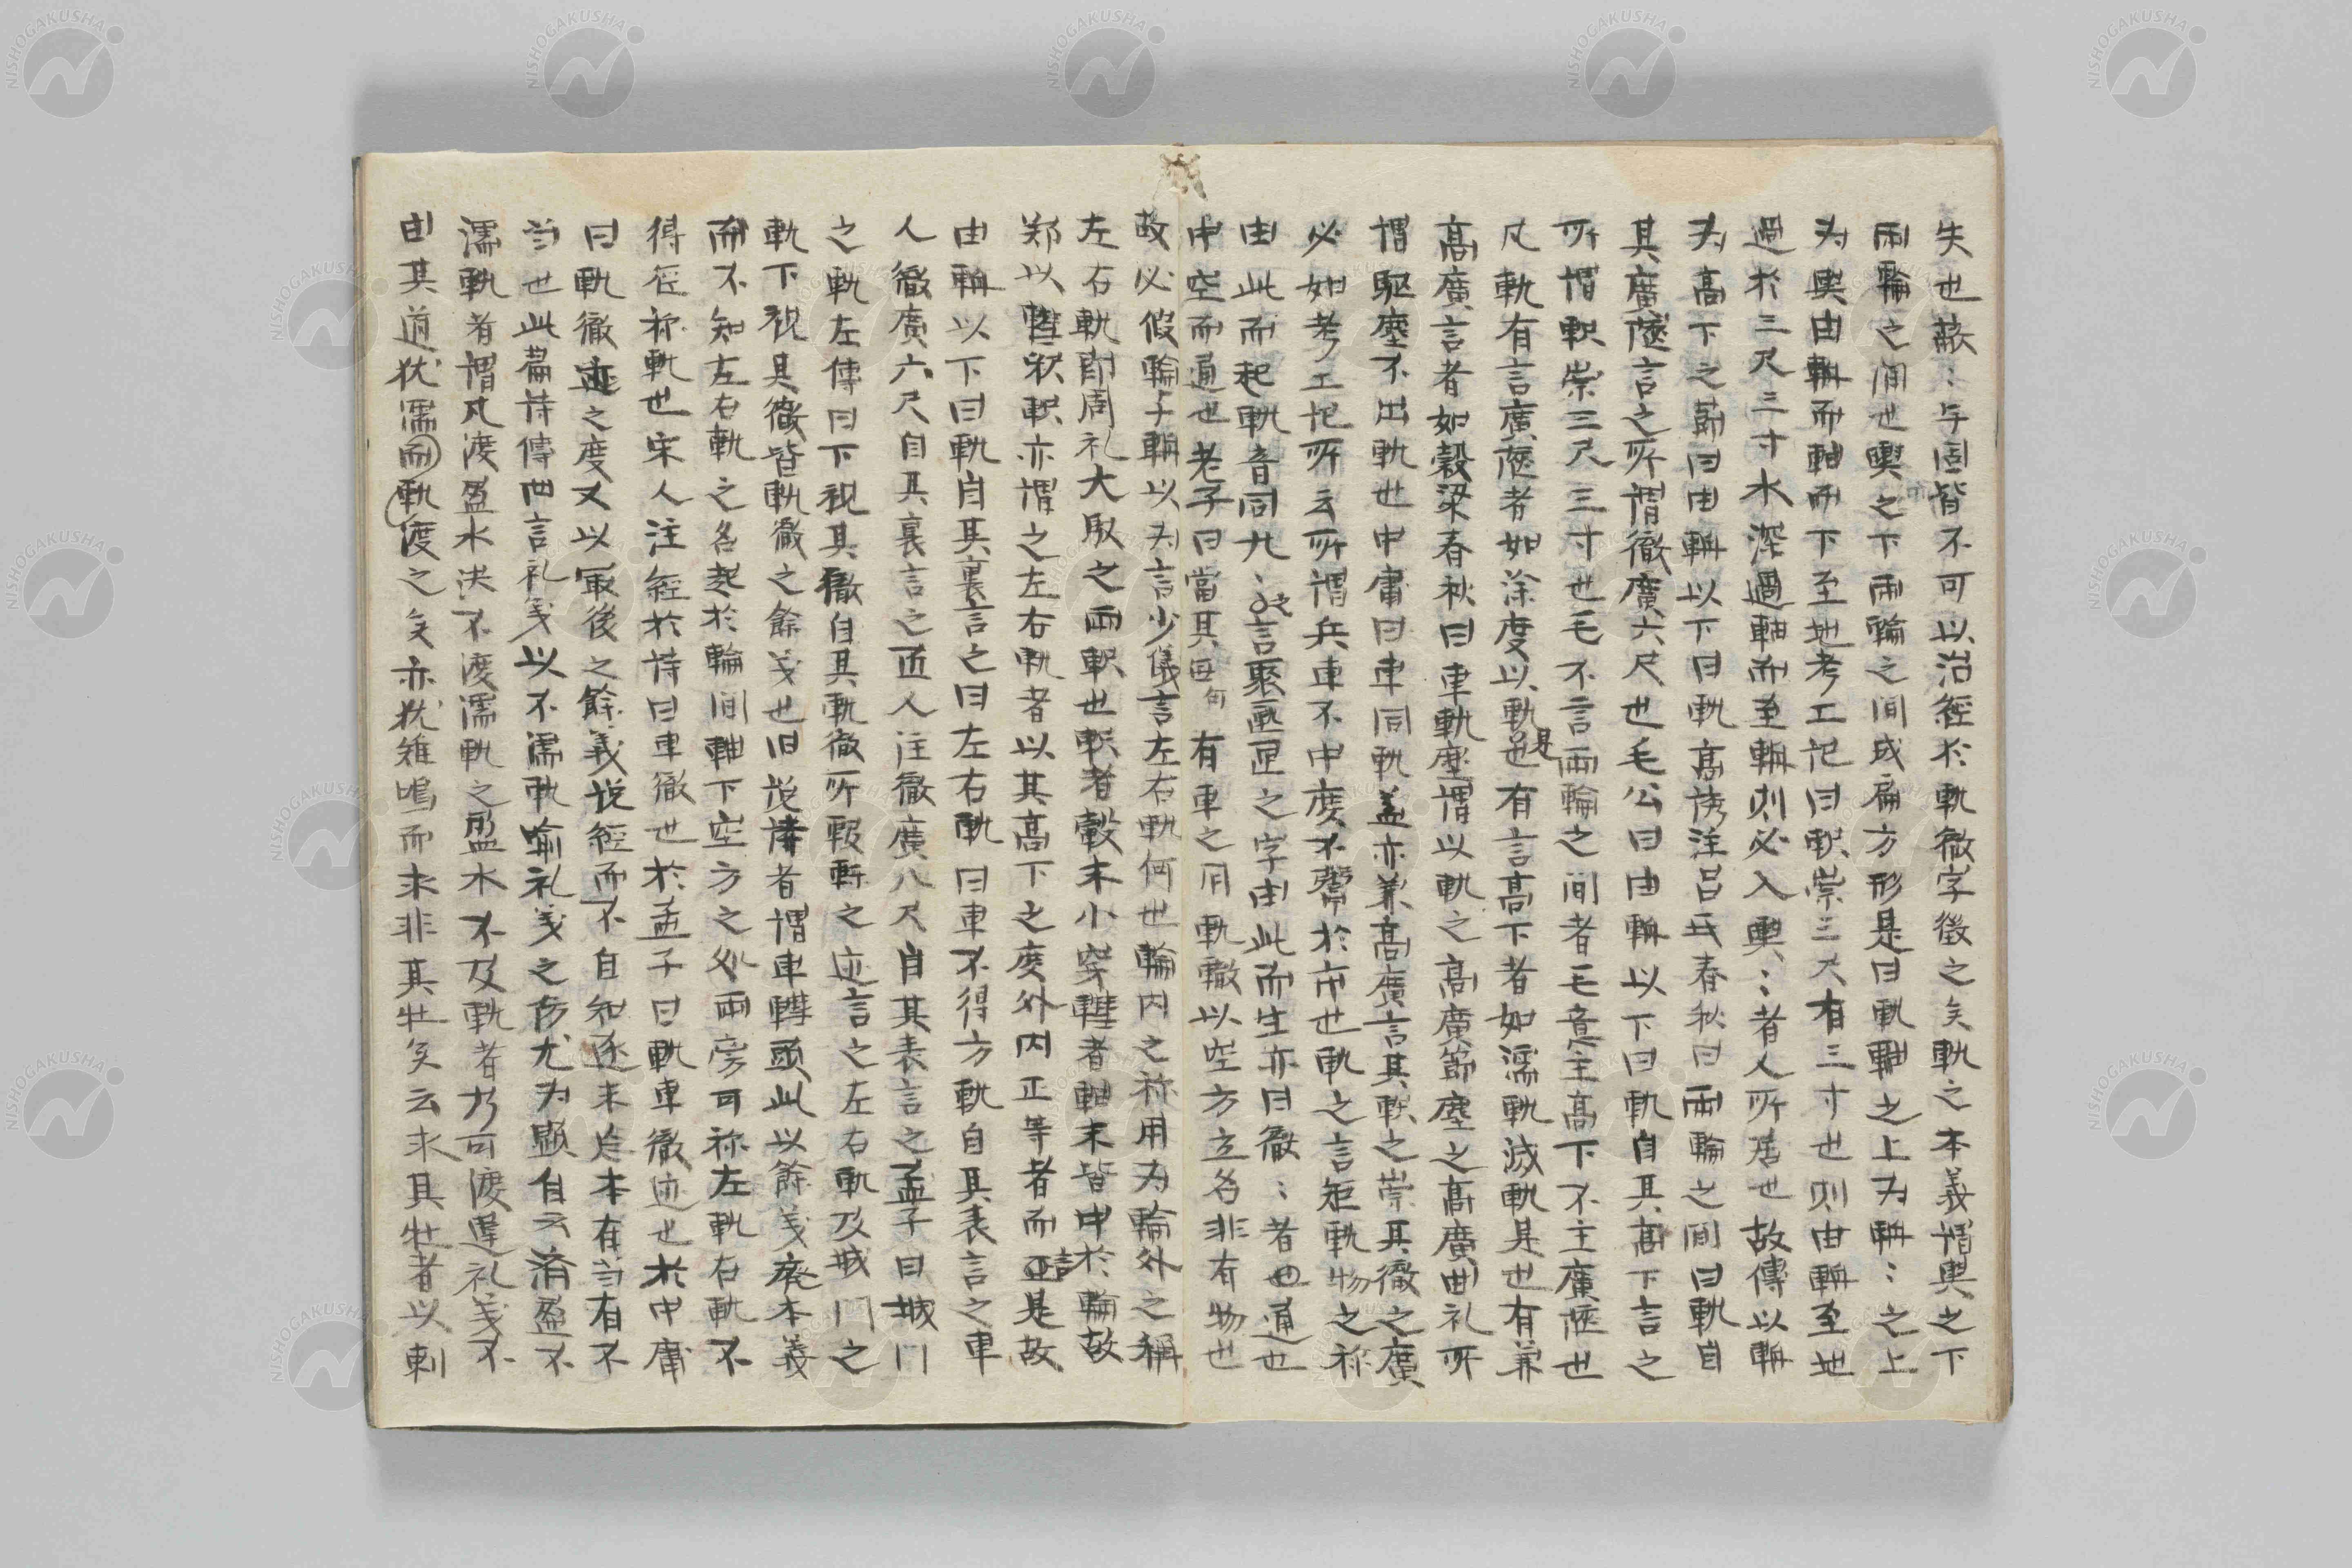 失也蔽〻与固皆不可以治經於軌徹字徵之矣軌之本義謂輿之下
兩輪之间也輿之下兩輪之间成扁方形是曰軌軸之上为輈〻之上
为輿由輈而軸而下至地考工记曰軹崇三尺有三寸也则由輈至地
過於三尺三寸水深過軸而至輈则必入輿〻者人所居也故傳以輈
为高下之節曰由輈以下曰軌高誘注吕氏春秋曰兩輪之间曰軌自
其廣陿言之所謂徹廣六尺也毛公曰由輈以下曰軌自其高下言之
所謂軹崇三尺三寸也毛不言兩輪之间者毛意主高下不主廣陿也
凡軌有言廣陿者如涂度以軌是也有言高下者如濡軌滅軌是也有兼
高廣言者如穀梁春秋曰車軌塵謂以軌之高廣節塵之高廣曲礼所
謂驅塵不出軌也中庸曰車同軌盖亦兼高廣言其軹之崇其徹之廣
必如考工记所云所謂兵車不中度不鬻於市也軌之言矩軌物之称
由此而起軌音同九〻之言聚匦匭之字由此而生亦曰徹〻者通也
中空而通也老子曰當其毋有車之用軌轍以空方立名非有物也
故必假輪与輈以为言少儀言左右軌何也輪内之称用为輪外之稱
左右軌即周礼大馭之兩軹也軹者轂末小穿轊者軸末皆中於輪故
郑以轊釈軹亦謂之左右軌者以其高下之度外内正等者而詰是故
由輈以下曰軌自其裏言之曰左右軌曰車不得方軌自其表言之車
人徹廣六尺自其裏言之匠人注徹廣八尺自其表言之孟子曰城门
之軌左傳曰下視其徹自其軌徹所報暫之迹言之左右軌及城门之
軌下視其徹皆軌徹之餘义也旧说諱者謂車轊頭此以餘义廃本義
而不知左右軌之名起於輪间軸下空方之处兩旁可称左軌右軌不
得径称軌也宋人注經於诗曰車徹也於孟子曰軌車徹迹也於中庸
曰軌徹迹之度又以最後之餘義说經而不自知逐末失本有当有不
当也此篇诗傳曲言礼义以不濡軌喻礼义之防尤为顯白云济盈不
濡軌者謂凡渡盈水决不渡濡軌之盈水不及軌者乃可渡違礼义不
由其道犹濡而軌渡之矣亦犹雉鳴而求非其牡矣云求其牡者以刺